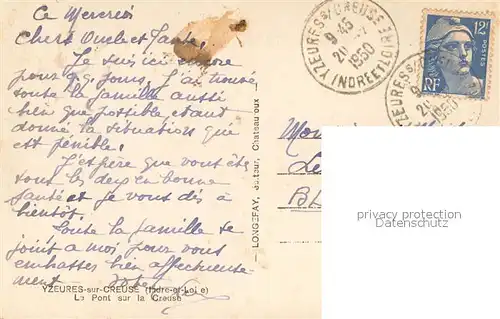 Ce Mercredi
Chers Oncle et Tante,
Je suis ici encore
pour qq jours. J'ai trouvé
toute la famille aussi
bien que possible étant
donné la situation qui
est pénible.
J'espère que vous êtes
tous les deux en bonne
santé et je vous dis à
bientôt.
Toute la famille se
joint a moi pour vous
embrasser bien affectueuse-
ment
YZEURES-sur-CREUSE (Indre-et-Loire)
Le Pont sur la Creuse
LONGEFAY, Editeur, Chateauroux
YZEURES S/ CREUSE
9-45
20
1950
(INDRE ET LOIRE)
12F
POSTES
RF
YZEURES S/
1950
protected by copyright
PROVIDED BY